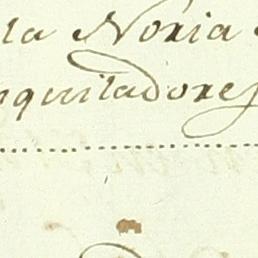 la Noria
nquiladores